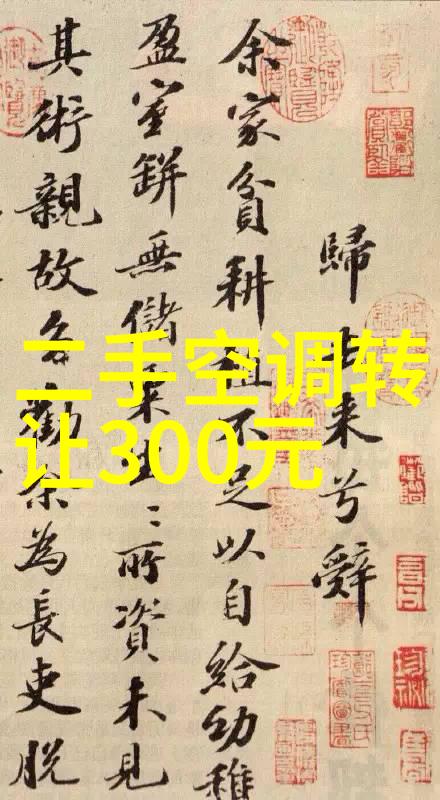 二手空调转
让300元
歸去来兮辭
余家貧耕植不足以自給幼稚
盈室缾無儲粟生〻所資未見
其術親故多勸余為長吏脱